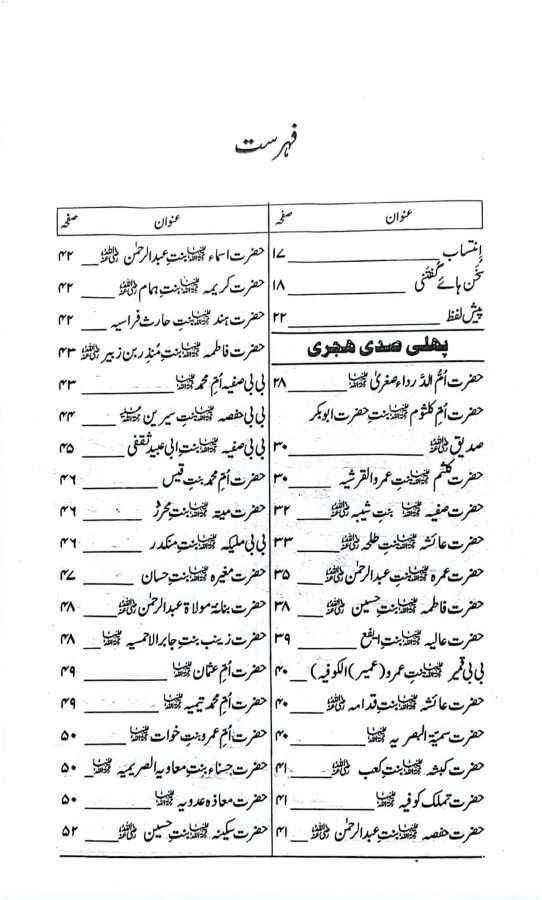 فہرست
عنوان صفحہ
اِنتساب ۱۷
سخن ہائے گُفتنی ۱۸
پیش لفظ ۲۲
پہلی صدی ہجری
حضرت اُمّ الدَّرداء صغریٰ ۲۸
حضرت اُمّ کلثوم بنتِ حضرت ابوبکر
صدیق ۳۰
حضرت کلثم بنتِ عمرو القرشیہ ۳۰
حضرت صفیہ بنتِ شیبہ ۳۲
حضرت عائشہ بنتِ طلحہ ۳۳
حضرت عمرہ بنتِ عبدالرحمٰن ۳۵
حضرت فاطمہ بنتِ حسین ۳۸
حضرت عالیہ بنتِ ایفع ۳۹
بی بی قمیر بنتِ عمرو (عمیر) الکوفیہ) ۴۰
حضرت عائشہ بنتِ قدامہ ۴۰
حضرت سمیّۃ البصریہ ۴۰
حضرت کبشہ بنتِ کعب ۴۱
حضرت تملک کوفیہ ۴۱
حضرت حفصہ بنتِ عبدالرحمٰن ۴۱
عنوان صفحہ
حضرت اسماء بنتِ عبدالرحمٰن ۴۲
حضرت کریمہ بنتِ ہمام ۴۲
حضرت ہند بنتِ حارث فراسیہ ۴۲
حضرت فاطمہ بنتِ مُنذِر بن زبیر ۴۳
بی بی صفیہ اُمّ محمد ۴۳
بی بی حفصہ بنتِ سیرین ۴۴
بی بی صفیہ بنتِ ابی عبید ثقفی ۴۵
حضرت اُمّ محمد بنتِ قیس ۴۶
حضرت میتہ بنتِ محرز ۴۶
بی بی ملیکہ بنتِ منکدر ۴۶
حضرت مغیرہ بنتِ حسان ۴۷
حضرت بنانۃ مولاۃ عبدالرحمٰن ۴۸
حضرت زینب بنتِ جابر الاحمسیہ ۴۸
حضرت اُمّ عثمان ۴۹
حضرت اُمّ محمد تیمیہ ۴۹
حضرت اُمّ عمرو بنتِ خوات ۵۰
حضرت حسناء بنتِ معاویہ الصریمیہ ۵۰
حضرت معاذہ عدویہ ۵۰
حضرت سکینہ بنتِ حسین ۵۲